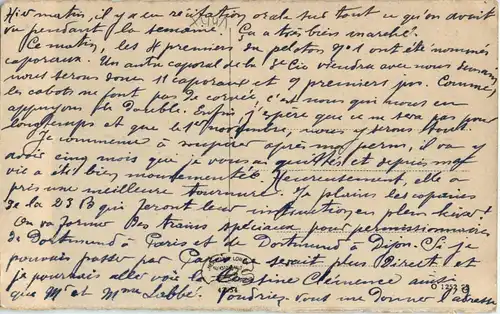 Hier matin, il y a eu récitation orale sur tout ce qu'on avait
vu pendant la semaine. Ça a très bien marché.
Ce matin, les 4 premiers du peloton N°1 ont été nommés
caporaux. Un autre caporal de la 8e Cie viendra avec nous demain
nous serons donc 11 caporaux et 9 premiers jus. Comme
les cabots ne font pas de corvée, c'est nous qui nous en
appuyons le double. Enfin j'espère que ce ne sera pas pour
longtemps et que le 1er novembre, nous y serons tous.
Je commence à soupirer après ma perm, il va y
avoir cinq mois que je vous ai quittés et depuis ma
vie a été bien mouvementée. Heureusement, elle a
pris une meilleure tournure. Je plains les copains
de la 23 B qui feront leur instruction en plein hiver.
On va former des trains spéciaux pour permissionnaires
de Dortmund à Paris et de Dortmund à Dijon. Si je
pouvais passer par Paris ce serait plus direct et
je pourrais aller voir la cousine Clémence ainsi
que Mr et Mme Labbé. Voudriez-vous me donner l'adresse